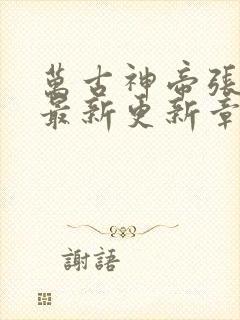 萬古神帝張
最新更新章
謝語